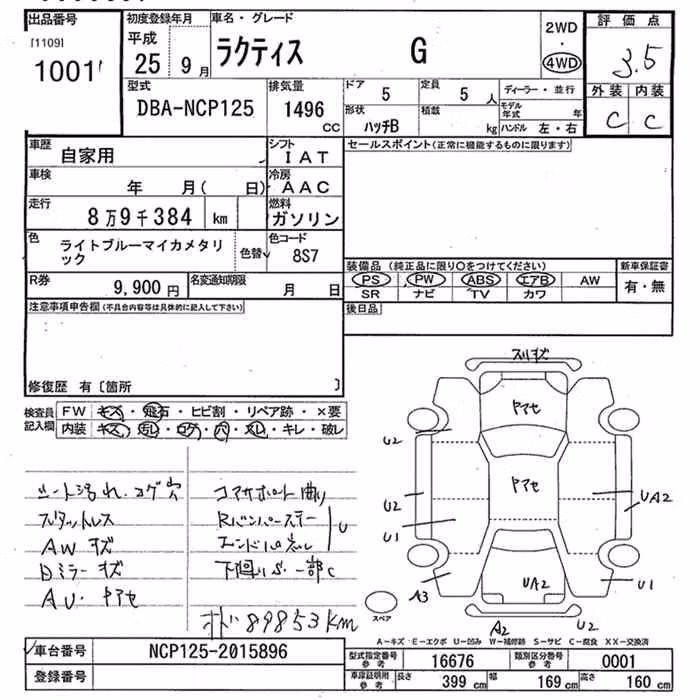 出品番号
[1109]
1001
初度登録年月
平成
25 9月
車名・グレード
ラクティス G
2WD
・
4WD
評価点
3.5
外装 内装
C C
型式
DBA-NCP125
排気量
1496
CC
ドア
5
定員
5人
ディーラー・並行
形状
ハッチB
積載
kg
モデル年式 年
ハンドル 左・右
車歴
自家用
シフト
IAT
セールスポイント(正常に機能するものに限ります)
車検
年 月( 日)
冷房
AAC
走行
8万9千384 km
燃料
ガソリン
色
ライトブルーマイカメタリック
色替
色コード
8S7
装備品(純正品に限り○をつけてください)
新車保証書
PS PW ABS エアB AW
SR ナビ TV カワ
有・無
R券
9,900円
名変通知期限
月 日
後日品
注意事項申告欄(不具合内容等は具体的に記入して下さい)
修復歴 有〔箇所 〕
検査員記入欄
FW キズ・飛石・ヒビ割・リペア跡・×要
内装 キズ・汚レ・コゲ・穴・スレ・キレ・破レ
シート汚れ.コゲ穴
スペタットレス
AWキズ
Dミラーキズ
AU.ヤアセ
コアサポート曲り
Rバンパーステー
エンドパネル
U
下回りS.一部C
メーター89853km
スリキズ
ヤアセ
ヤアセ
U2
U2
U1
A3
UA2
UA2
U1
A2
U2
スペア
A-キズ E-エクボ U-凹み W-補修跡 S-サビ C-腐食 XX-交換済
車台番号
NCP125-2015896
登録番号
型式指定番号 参考
16676
類別区分番号 参考
0001
車庫証明用 参考
長さ 399 cm
幅 169 cm
高さ 160 cm